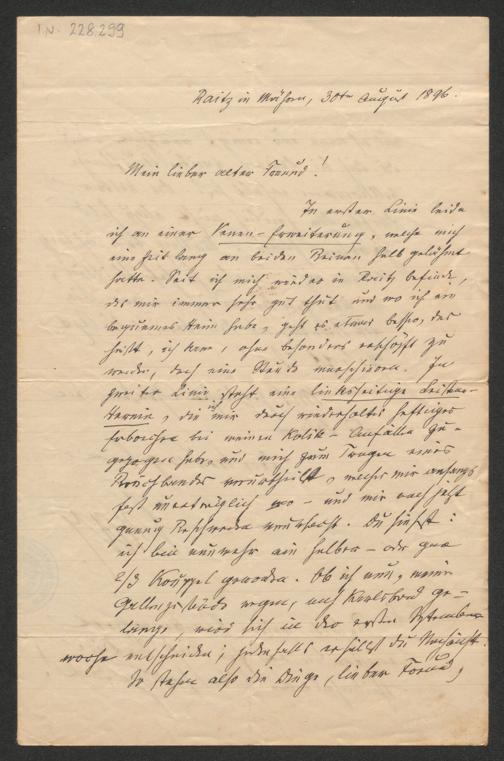 I.N. 228.299
Raitz in Mähren, 30ten August 1896.
Mein lieber alter Freund!
In erster Linie leide
ich an einer Venen-Erweiterung, welche mich
eine Zeit lang an beiden Beinen halb gelähmt
hatte. Seit ich mich wieder in Raitz befinde,
das mir immer sehr gut thut und wo ich ein
bequemes Heim habe, geht es etwas besser, das
heißt, ich kann, ohne besonders erschöpft zu
werden, doch eine Stunde marschieren. In
zweiter Linie steht eine linksseitige Leisten-
Hernie, die ich mir durch wiederholtes heftiges
Erbrechen bei meinen Kolik-Anfällen zu-
gezogen habe, und mich zum Tragen eines
Bruchbandes verurtheilt, welches mir anfangs
fast unerträglich war – und mir noch jetzt
genug Beschwerden verursacht. Du siehst:
ich bin nunmehr ein halber – oder gar
2/3 Krüppel geworden. Ob ich nun, meiner
Gallengrieße wegen, nach Karlsbad ge-
lange, wird sich in der ersten September-
woche entscheiden; jedenfalls erhältst Du Nachricht.
So stehen also die Dinge, lieber Freund,